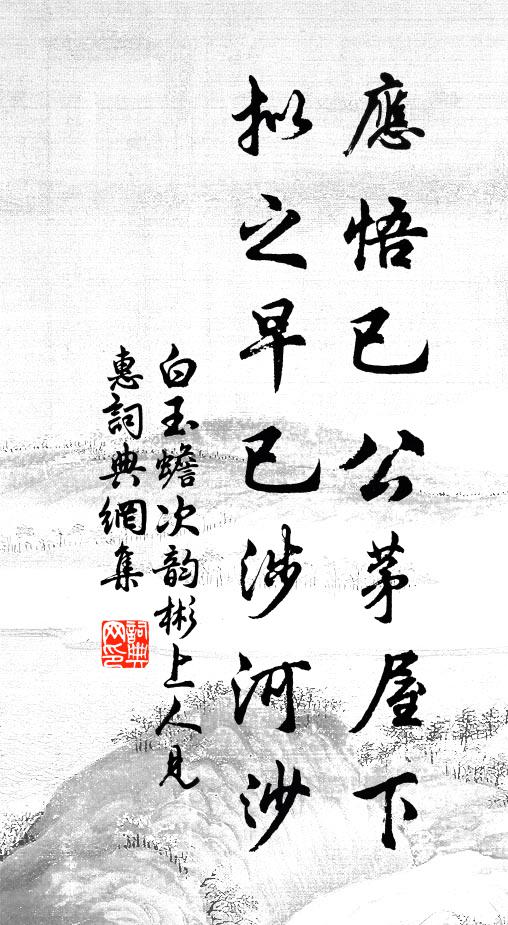 應悟已公茅屋下
拟之早已涉河沙
白玉蟾次韵彬上人見
惠詞典網集
詞典网印